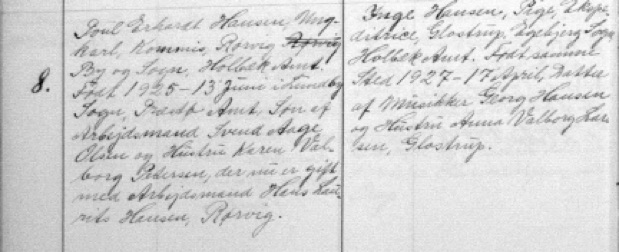 8.
Poul Erhardt Hansen, Ung-
karl, Kommis, Rørvig Rørvig
By og Sogn, Holbæk Amt.
Født 1925-13 Juni i Lundby
Sogn, Præstø Amt, Søn af
Arbejdsmand Svend Aage
Olsen og Hustru Karen Val-
borg Petersen, der nu er gift
med Arbejdsmand Hans Lau-
rits Hansen, Rørvig.
Inge Hansen, Pige, Ekspe-
ditrice, Glostrup, Egebjerg Sogn
Holbæk Amt. Født samme
Sted 1927-17 April, Datter
af Musikker Georg Hansen
og Hustru Anna Valborg Lar-
sen, Glostrup.